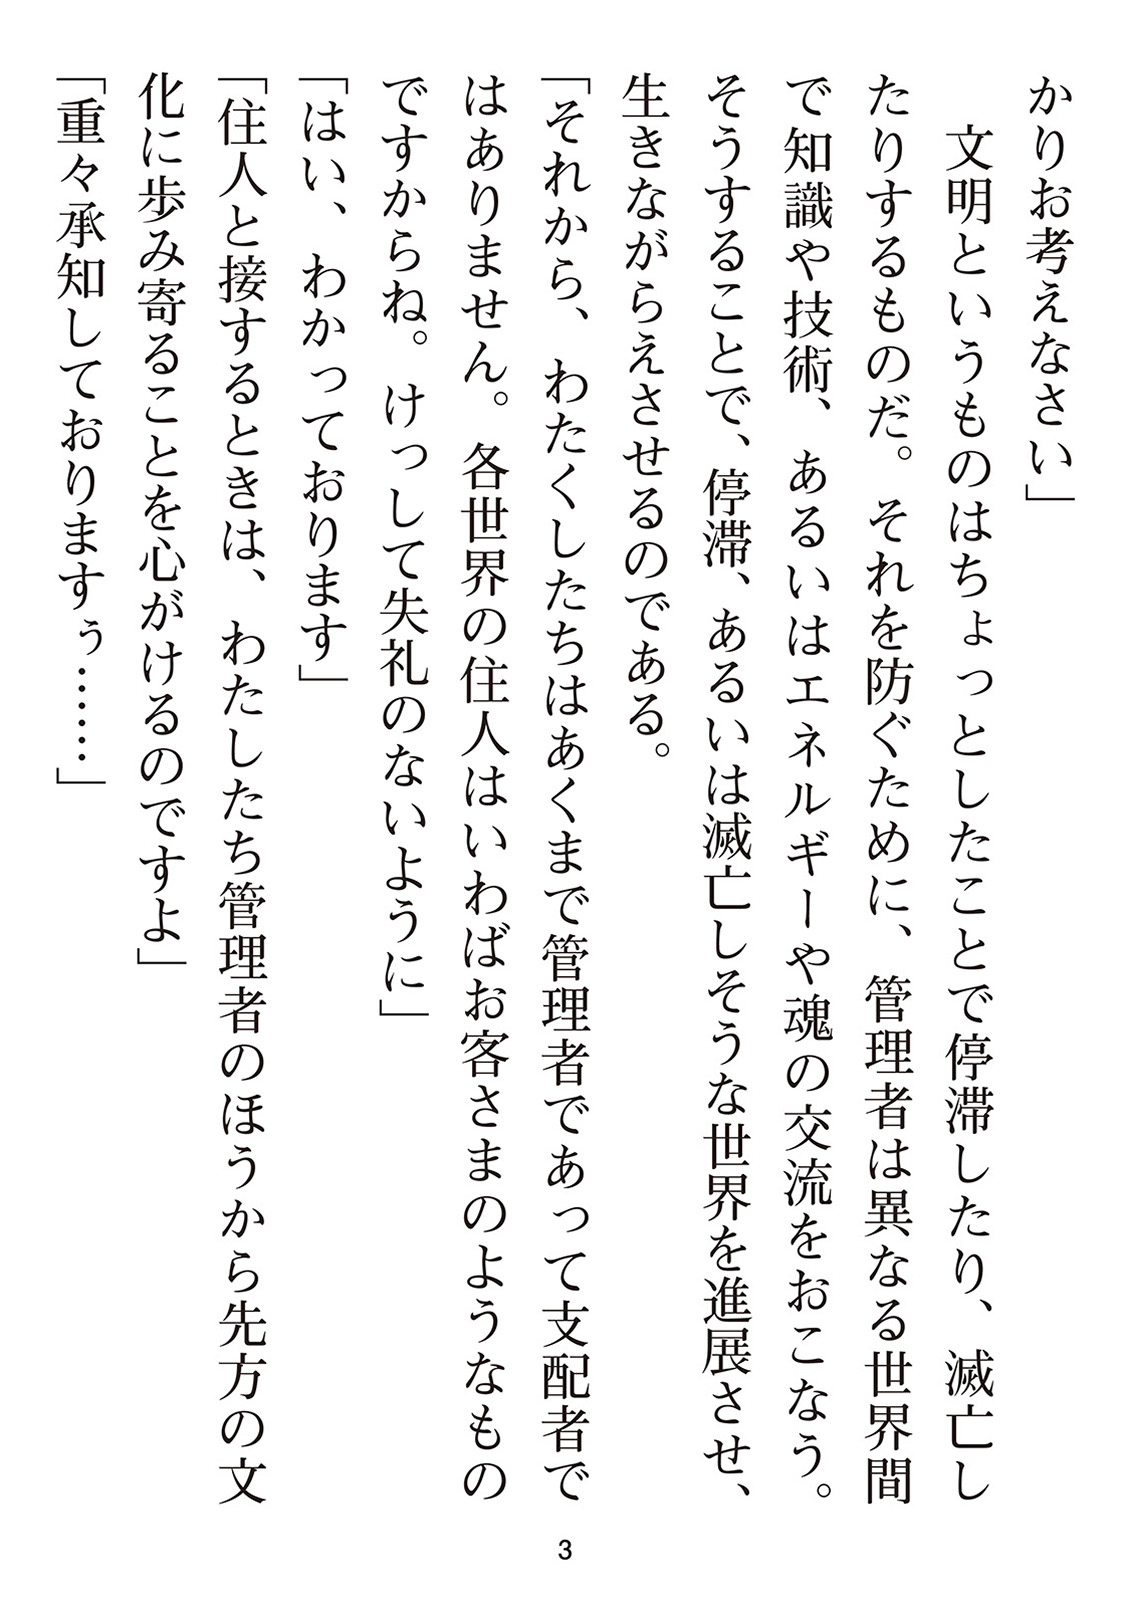 かりお考えなさい」
　文明というものはちょっとしたことで停滞したり、滅亡し
たりするものだ。それを防ぐために、管理者は異なる世界間
で知識や技術、あるいはエネルギーや魂の交流をおこなう。
そうすることで、停滞、あるいは滅亡しそうな世界を進展させ、
生きながらえさせるのである。
「それから、わたくしたちはあくまで管理者であって支配者で
はありません。各世界の住人はいわばお客さまのようなもの
ですからね。けっして失礼のないように」
「はい、わかっております」
「住人と接するときは、わたしたち管理者のほうから先方の文
化に歩み寄ることを心がけるのですよ」
「重々承知しておりますぅ……」
3